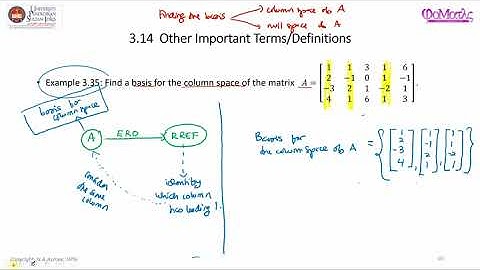 UNIVERSITI
PENDIDIKAN
SULTAN IDRIS
Finding the basis
column space of A
null space of A
3.14 Other Important Terms/Definitions
• Example 3.35: Find a basis for the column space of the matrix A =
1 1 3 1 6
2 -1 0 1 -1
-3 2 1 -2 1
4 1 6 1 3
basis for
column space
A
ERO
RREF
consider
the same
column
identify
which column
has leading 1.
Basis for
the column space of A
= { [1 2 -3 4], [1 -1 2 1], [1 1 -2 1] }